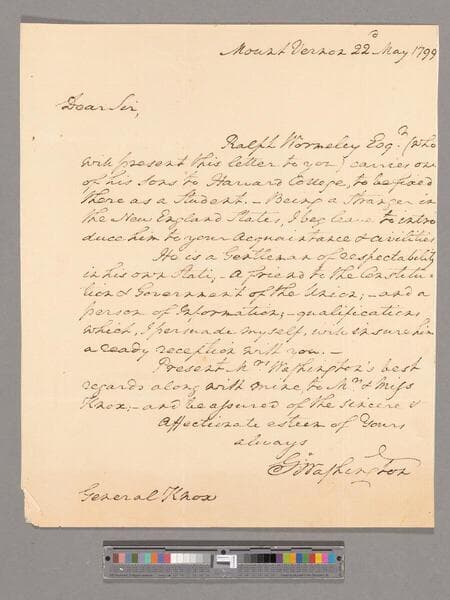 Mount Vernon 22d May 1799
Dear Sir,
Ralph Wormeley Esqr. (who
will present this letter to you) carries one
of his sons to Harvard College, to be fixed
there as a Student. – Being a stranger in
the New England States, I beg leave to intro
duce him to your Acquaintance & civilities
He is a Gentleman of respectability
in his own State; – A friend to the Constitu-
tion & Government of the Union; – and a
person of Information; – qualifications
which, I persuade myself, will insure him
a ready reception with you. –
Present Mrs Washington's best
regards along with mine to Mrs & Miss
Knox; – and be assured of the sincere &
Affectionate esteem of Yours
always
Go Washington
General Knox